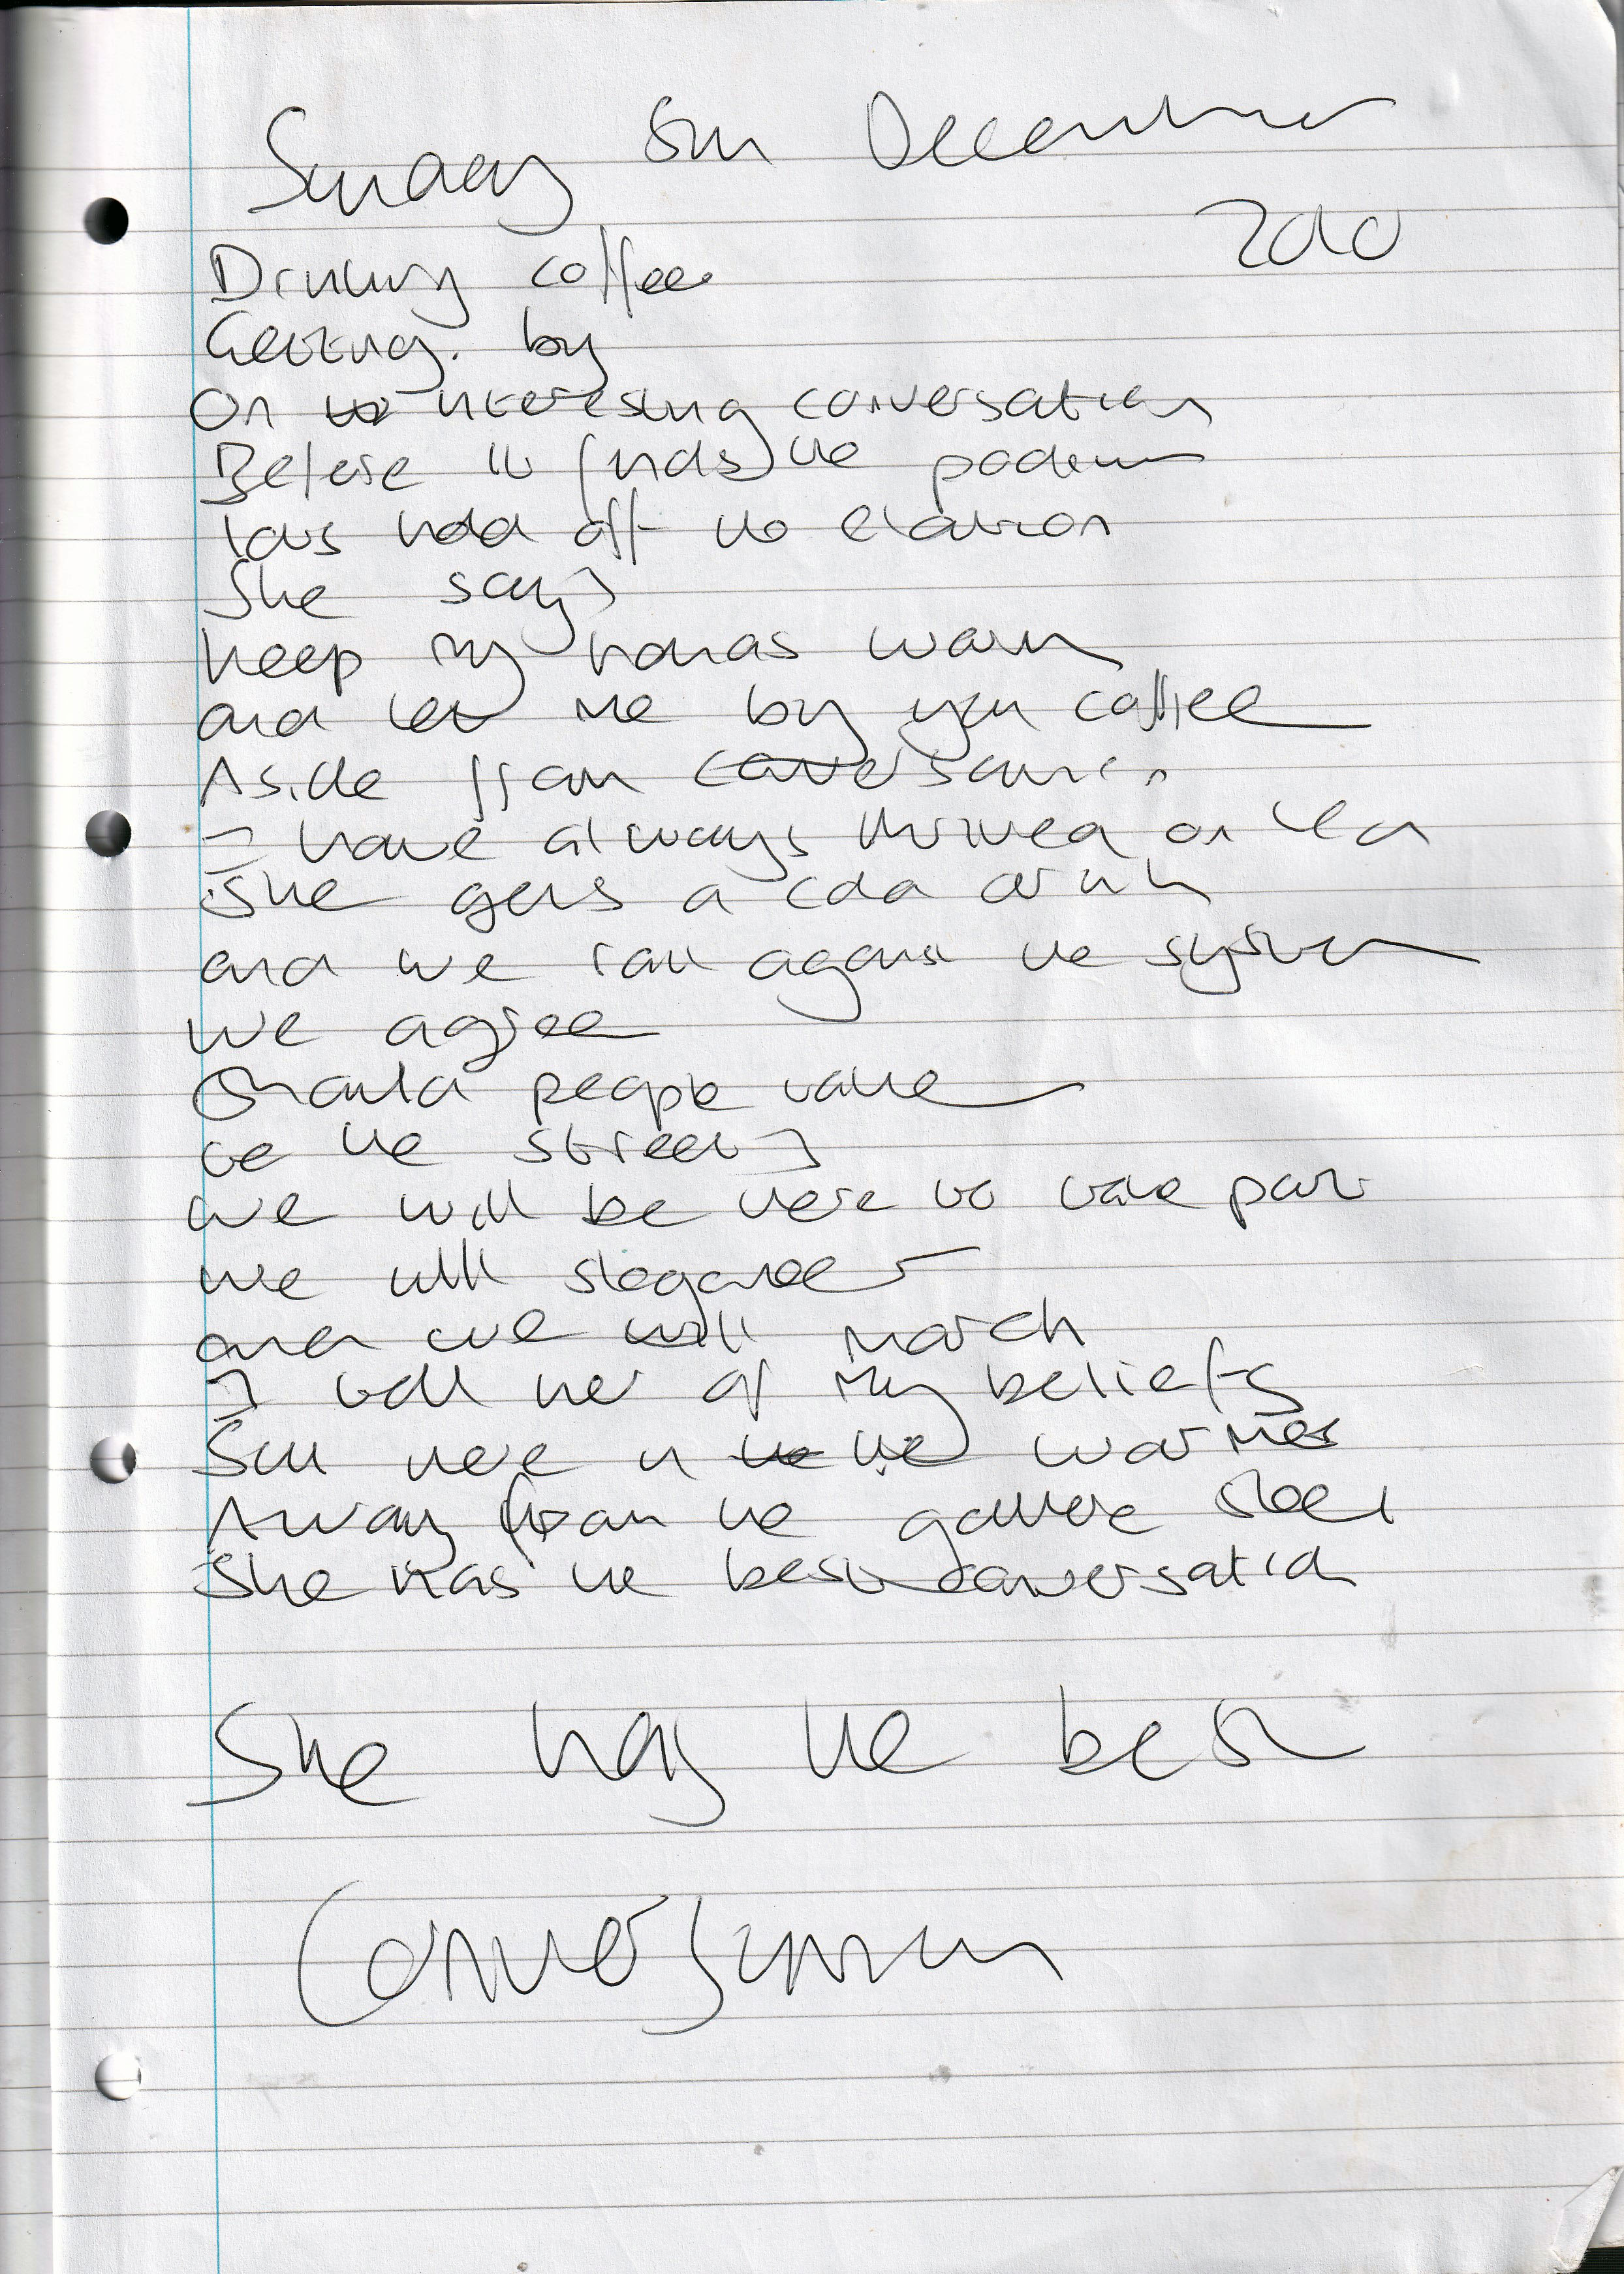 Sunday 5th December
2010
Drinking coffee
Getting by
On interesting conversation
Before it finds the podium
lets hold off the elation
She says
keep my hands warm
and let me by you coffee
Aside from conversation
I have always thrived on
She gets a cold drink
and we rail against the system
we agree
Should people take
to the streets
we will be there to take part
we will sloganeer
and we will march
I tell her of my beliefs
Sat here in the warmer
Away from the gathered
She has the best conversation
She has the best
Conversation